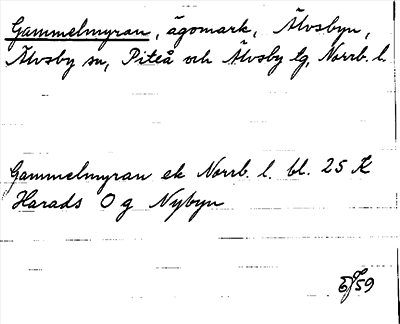 Gammelmyran, ägomark, Älvsbyn,
Älvsby sn, Piteå och Älvsby lg, Norrb. l.
Gammelmyran ek Norrb. l. bl. 25 K
Harads O g Nybyn